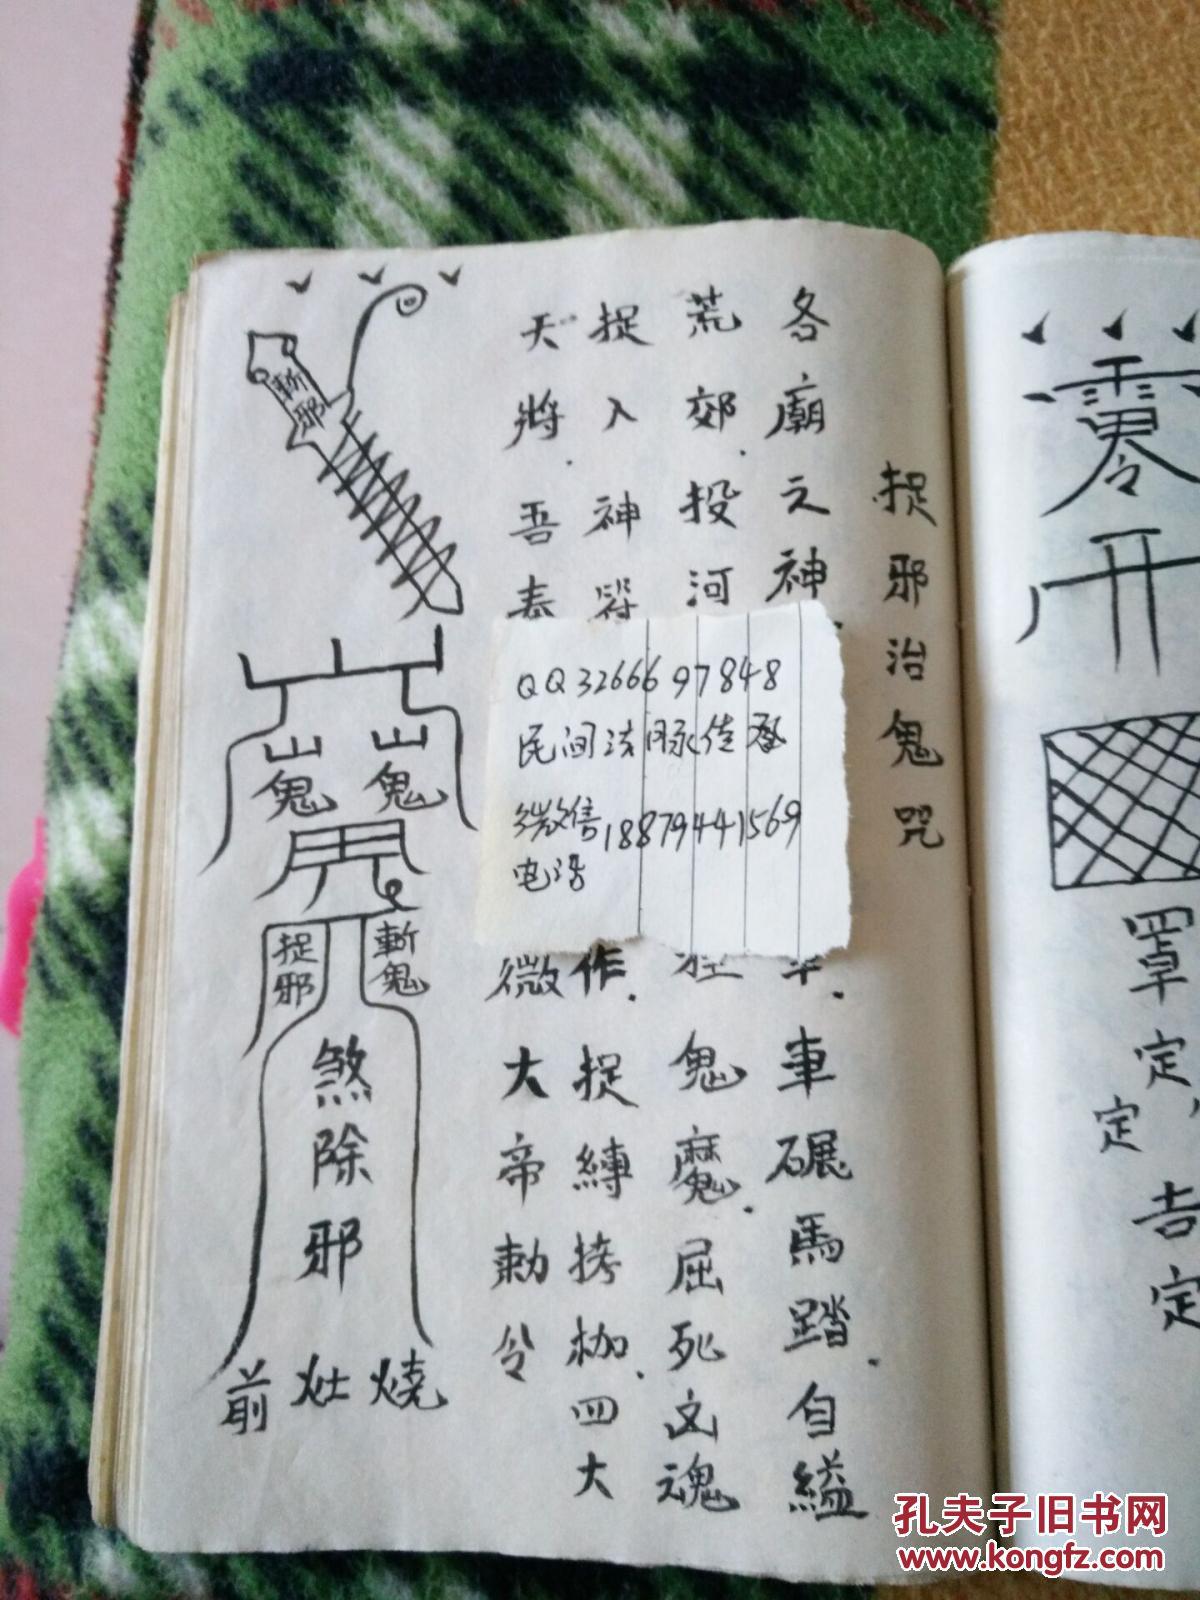 捉邪治鬼咒
各廟之神
車碾馬踏.自縊
荒郊.投河
鬼魔.屈死亡魂
捉入神
作.捉縛拷枷.四大
天將.吾奉
微大帝勅令
斬邪
山鬼
山鬼
捉邪
斬鬼
煞除邪
燒灶前
QQ3266697848
民间法脉传承
微信
18879441569
电话
開
罩定,
定
吉定
孔夫子旧书网
www.kongfz.com